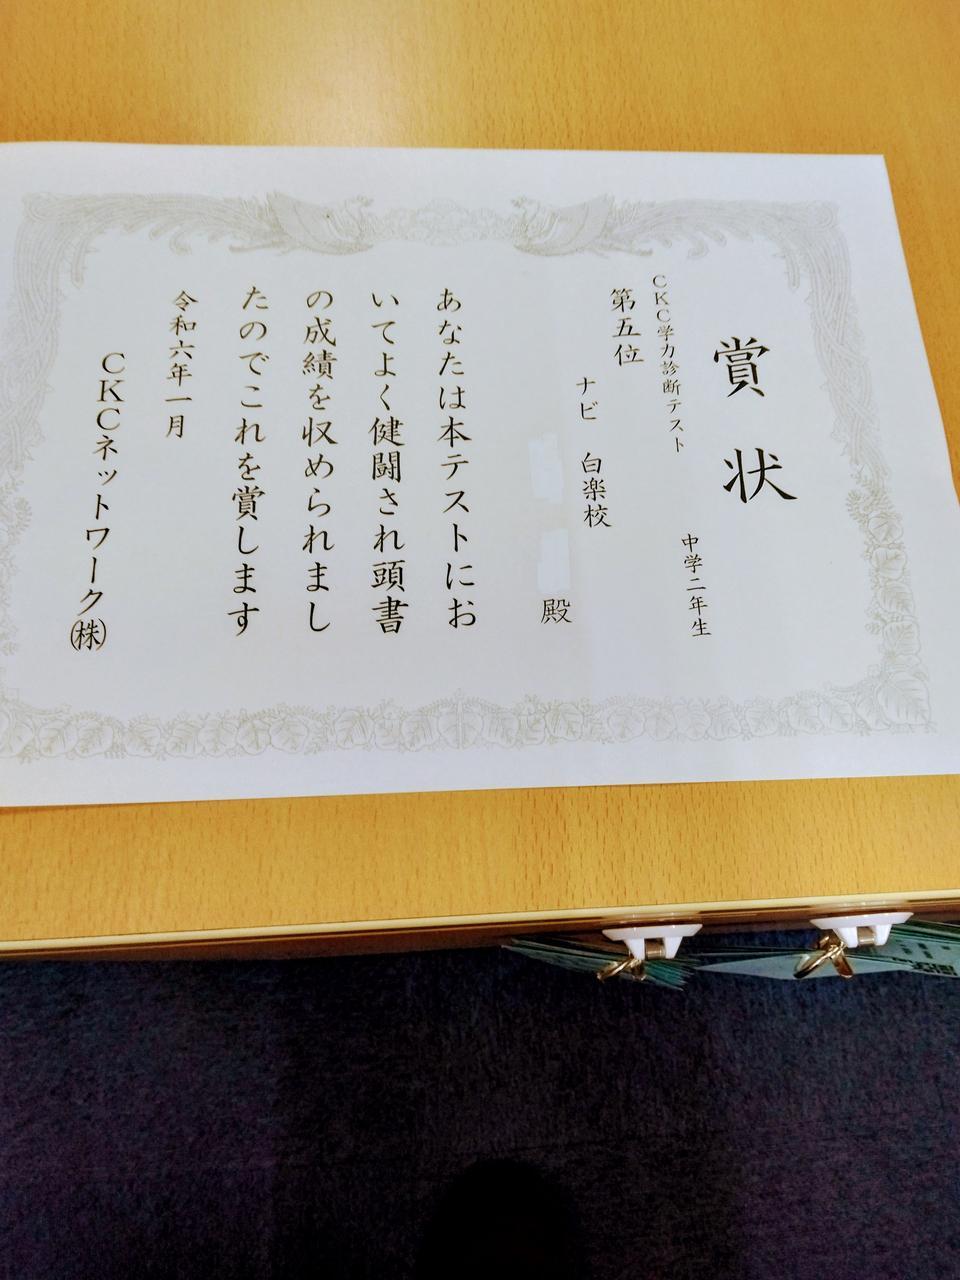 賞状
CKC学力診断テスト 中学二年生
第五位
ナビ 白楽校
殿
あなたは本テストにお
いてよく健闘され頭書
の成績を収められまし
たのでこれを賞します
令和六年一月
CKCネットワーク㈱